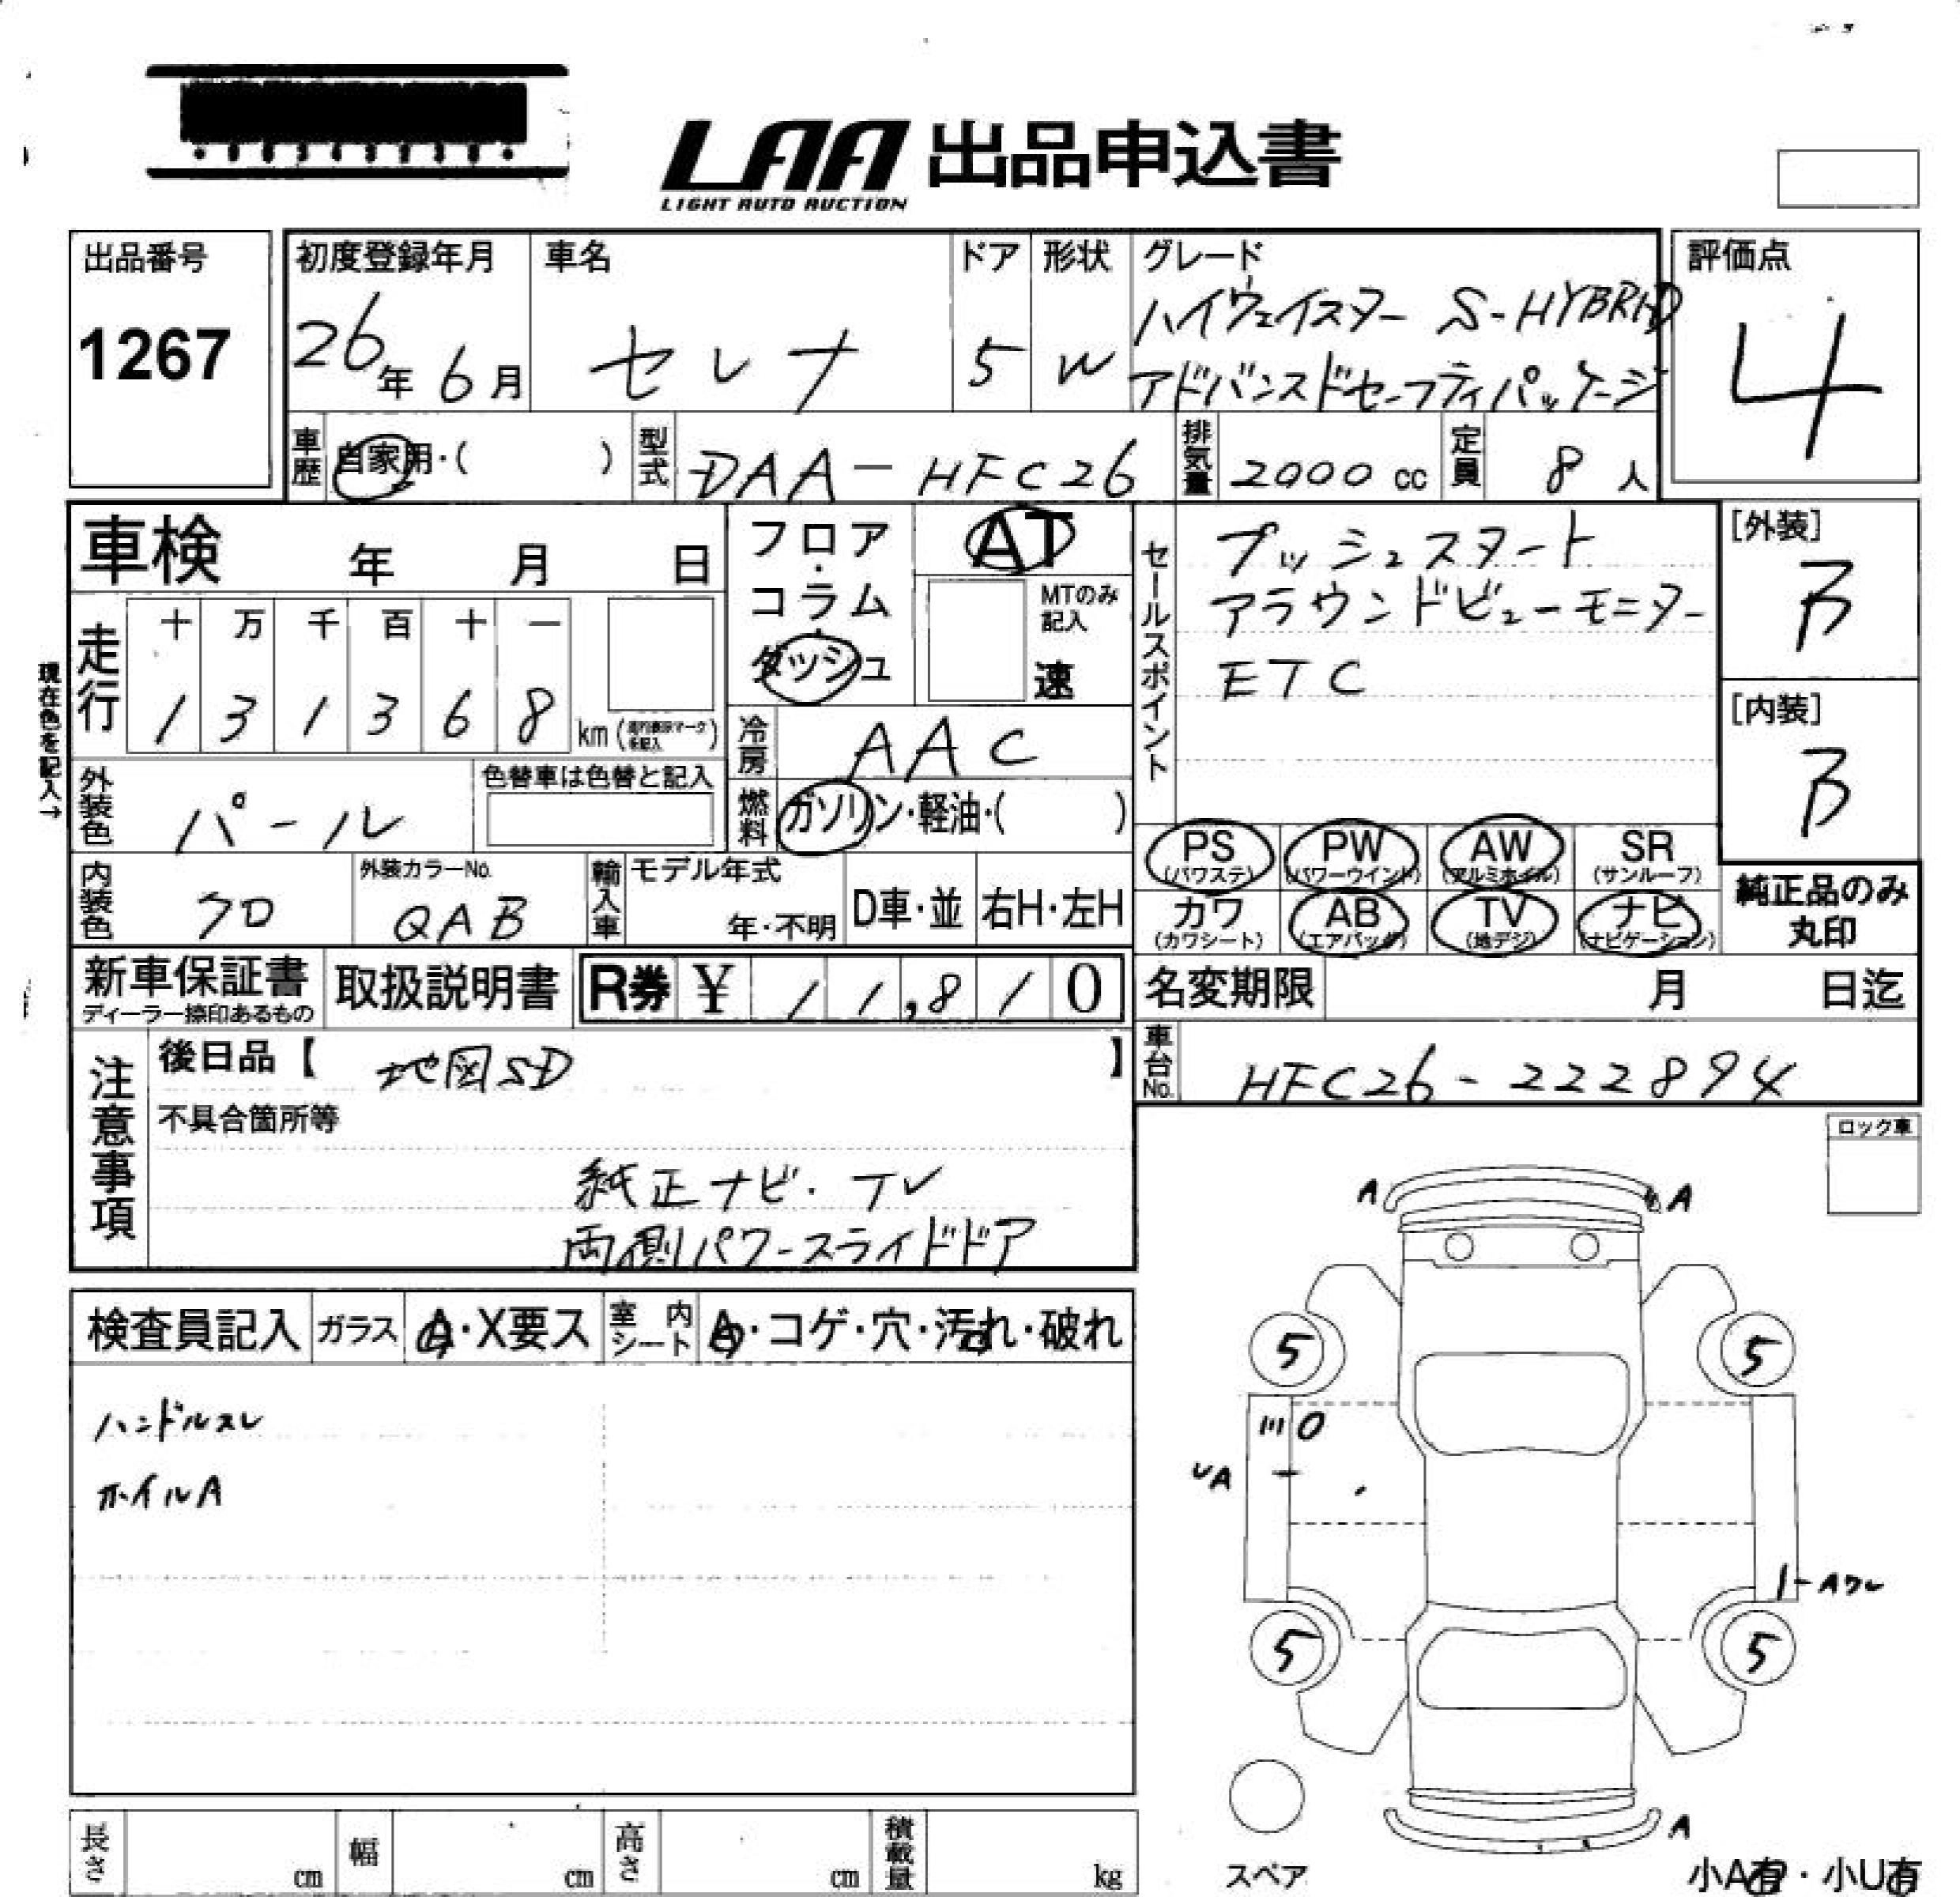 LAA 出品申込書
LIGHT AUTO AUCTION
出品番号
1267
初度登録年月
26年 6月
車名
セレナ
ドア
5
形状
W
グレード
ハイウェイスター S-HYBRID
アドバンスドセーフティパッケージ
評価点
4
車歴 自家用・( )
型式 DAA-HFC26
排気量 2000 cc
定員 8 人
車検 年 月 日
フロア・コラム・ダッシュ
AT
MTのみ記入
速
セールスポイント
プッシュスタート
アラウンドビューモニター
ETC
[外装]
B
[内装]
B
現在色を記入→
走行
十 万 千 百 十 一
1 3 1 3 6 8 km
冷房 AAC
燃料 ガソリン・軽油・( )
外装色 パール
色替車は色替と記入
PS (パワステ)
PW (パワーウインド)
AW (アルミホイル)
SR (サンルーフ)
カワ (カワシート)
AB (エアバッグ)
TV (地デジ)
ナビ (ナビゲーション)
純正品のみ丸印
内装色 クロ
外装カラーNo. QAB
輸入車
モデル年式
年・不明
D車・並
右H・左H
新車保証書
ディーラー捺印あるもの
取扱説明書
R券 ¥ 11,810
名変期限 月 日迄
車台No. HFC26-222894
注意事項
後日品【 地図SD 】
不具合箇所等
純正ナビ・TV
両側パワースライドドア
ロック車
検査員記入
ガラス A・X要ス
室内シート A・コゲ・穴・汚れ・破れ
ハンドルスレ
ホイルA
A A
5 5
UA
5 5
A
スペア
小A有・小U有
長さ cm
幅 cm
高さ cm
積載量 kg